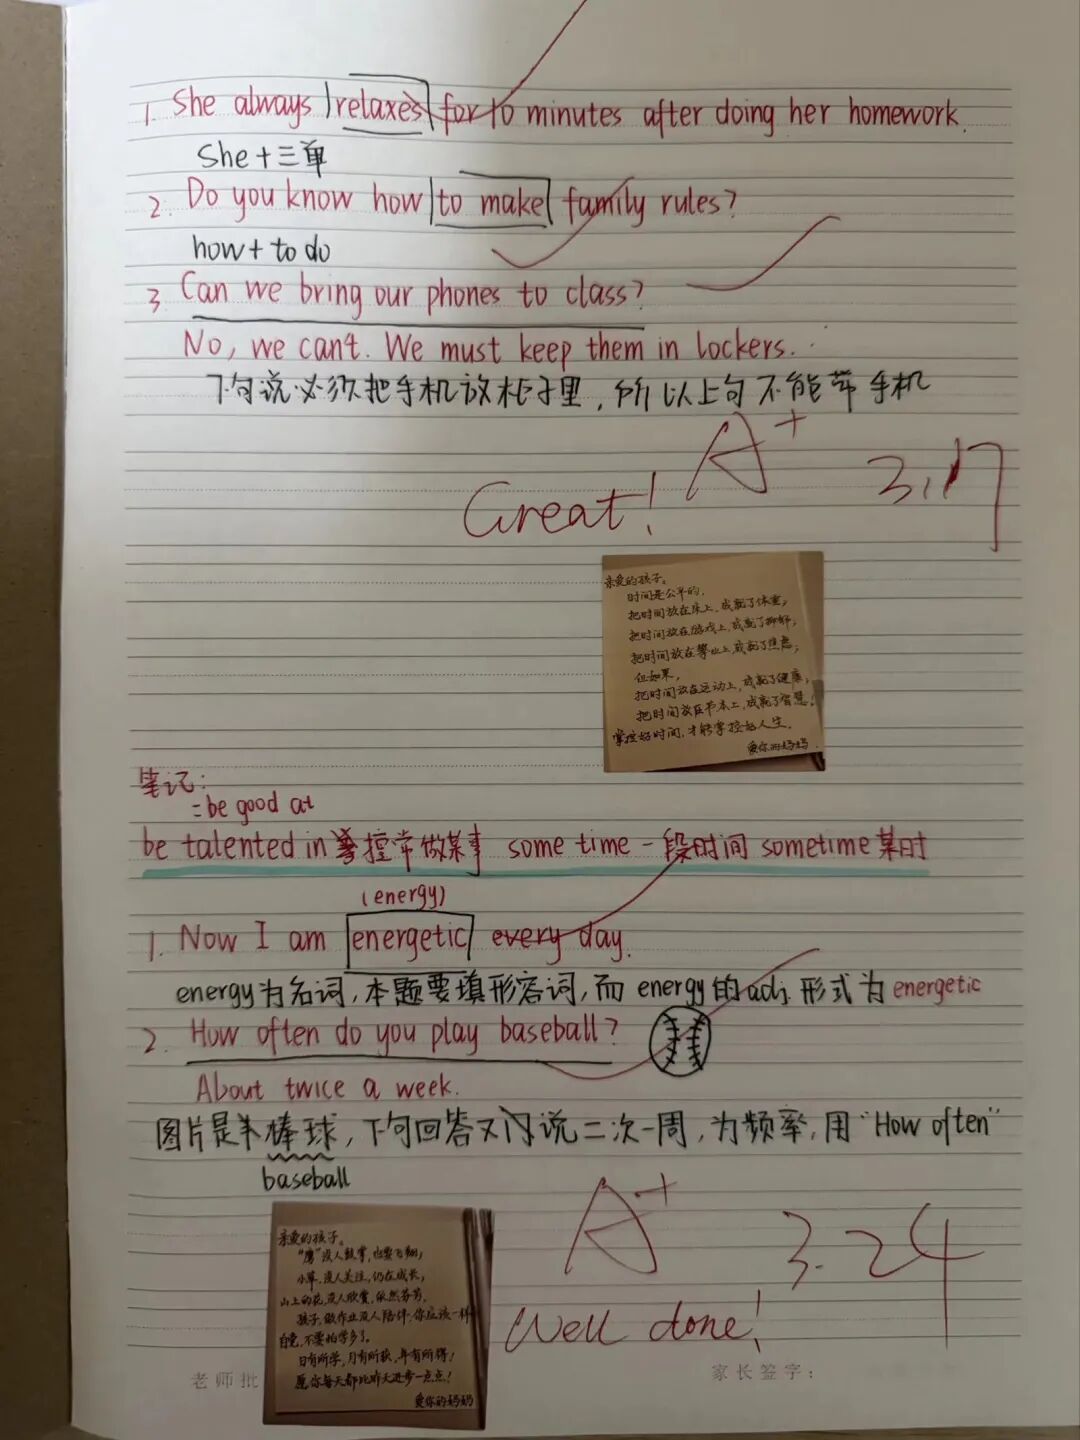 1. She always relaxes for 10 minutes after doing her homework.
She + 三单
2. Do you know how to make family rules?
how + to do
3. Can we bring our phones to class?
No, we can't. We must keep them in lockers.
下句说必须把手机放柜子里，所以上句不能带手机
Great! A+ 3.17
亲爱的孩子。
时间是公平的，
把时间放在床上，成就了体重；
把时间放在游戏上，成就了抑郁；
把时间放在攀比上，成就了焦虑；
但如果，
把时间放在运动上，成就了健康；
把时间放在书本上，成就了智慧！
掌控好时间，才能掌控好人生。
爱你的妈妈
笔记：
= be good at
be talented in 擅长做某事 some time 一段时间 sometime 某时
(energy)
1. Now I am energetic every day.
energy为名词，本题要填形容词，而energy的adj.形式为energetic
2. How often do you play baseball?
About twice a week.
图片是棒球，下句回答又说二次一周，为频率，用"How often"
baseball
A+ 3.24
Well done!
亲爱的孩子。
"鹰"没人鼓掌，也要飞翔；
小草，没人关注，仍在成长；
山上的花，没人欣赏，依然芬芳。
孩子，做作业没人陪伴，你应该一样
自觉，不要怕学多了。
日有所学，月有所获，年有所得！
愿你每天都比昨天进步一点点！
爱你的妈妈
老师批
家长签字：